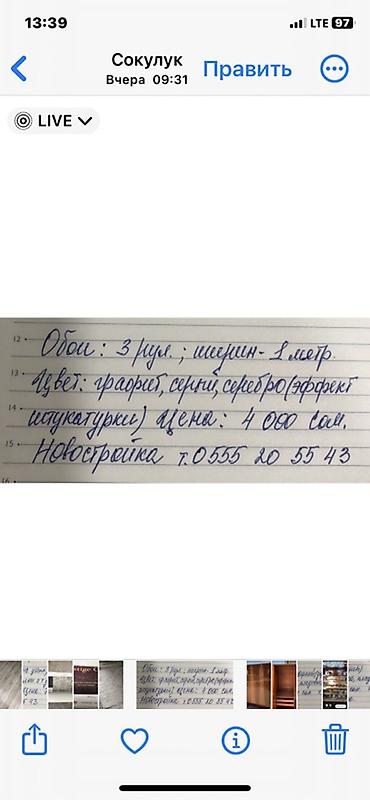 13:39
LTE 97
Сокулук
Вчера 09:31
Править
LIVE
12
Обои: 3 рул.; ширин- 1 метр.
13
Цвет: графит, серый, серебро (эффект
14
штукатурки) Цена: 4 000 сом.
15
Новостройка т. 0555 20 55 43